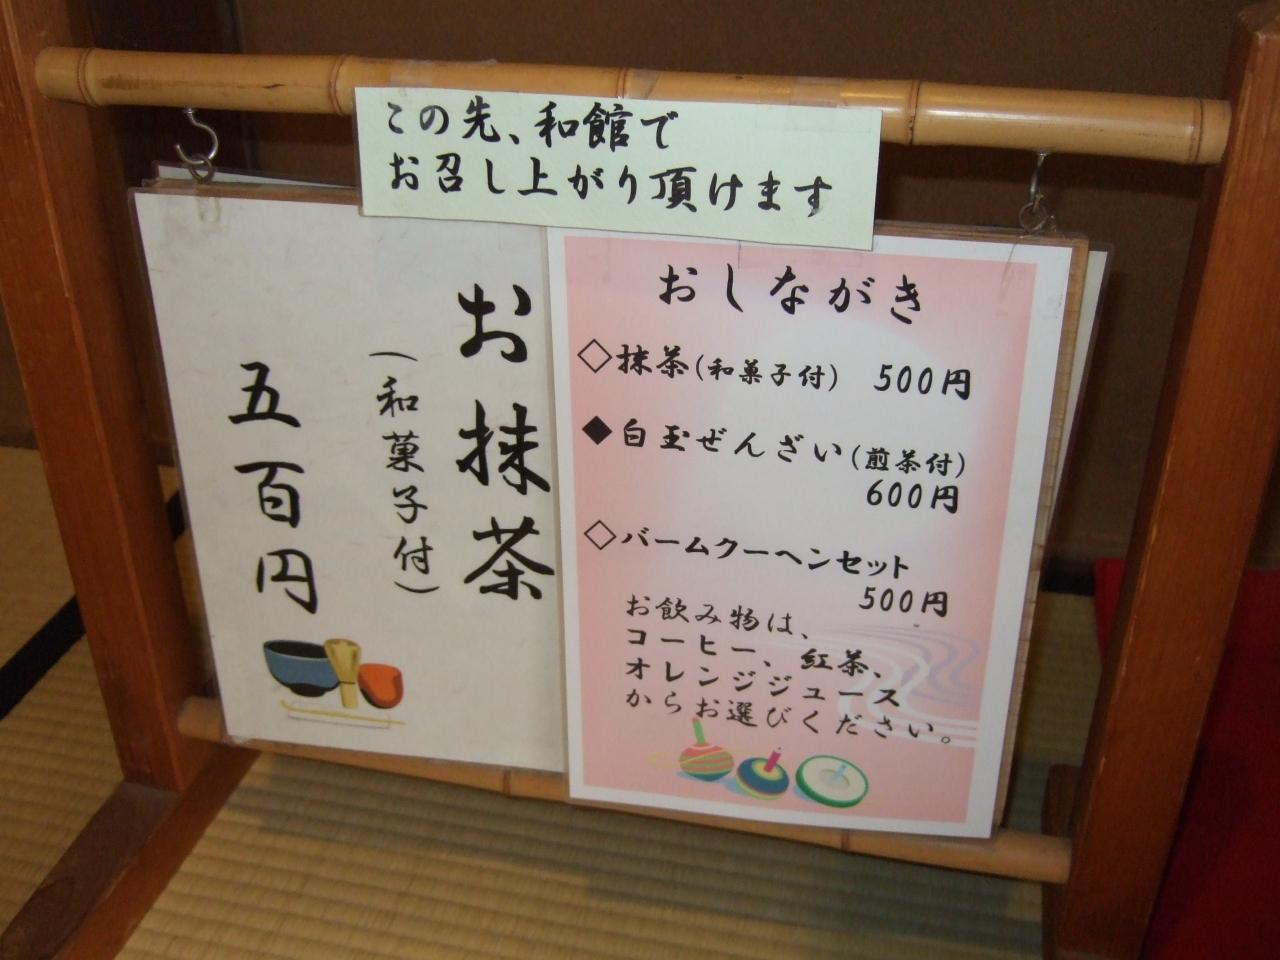 この先、和館で
お召し上がり頂けます
お抹茶
(和菓子付)
五百円
おしながき
◇抹茶(和菓子付) 500円
◆白玉ぜんざい(煎茶付)
600円
◇バームクーヘンセット
500円
お飲み物は、
コーヒー、紅茶、
オレンジジュース
からお選びください。